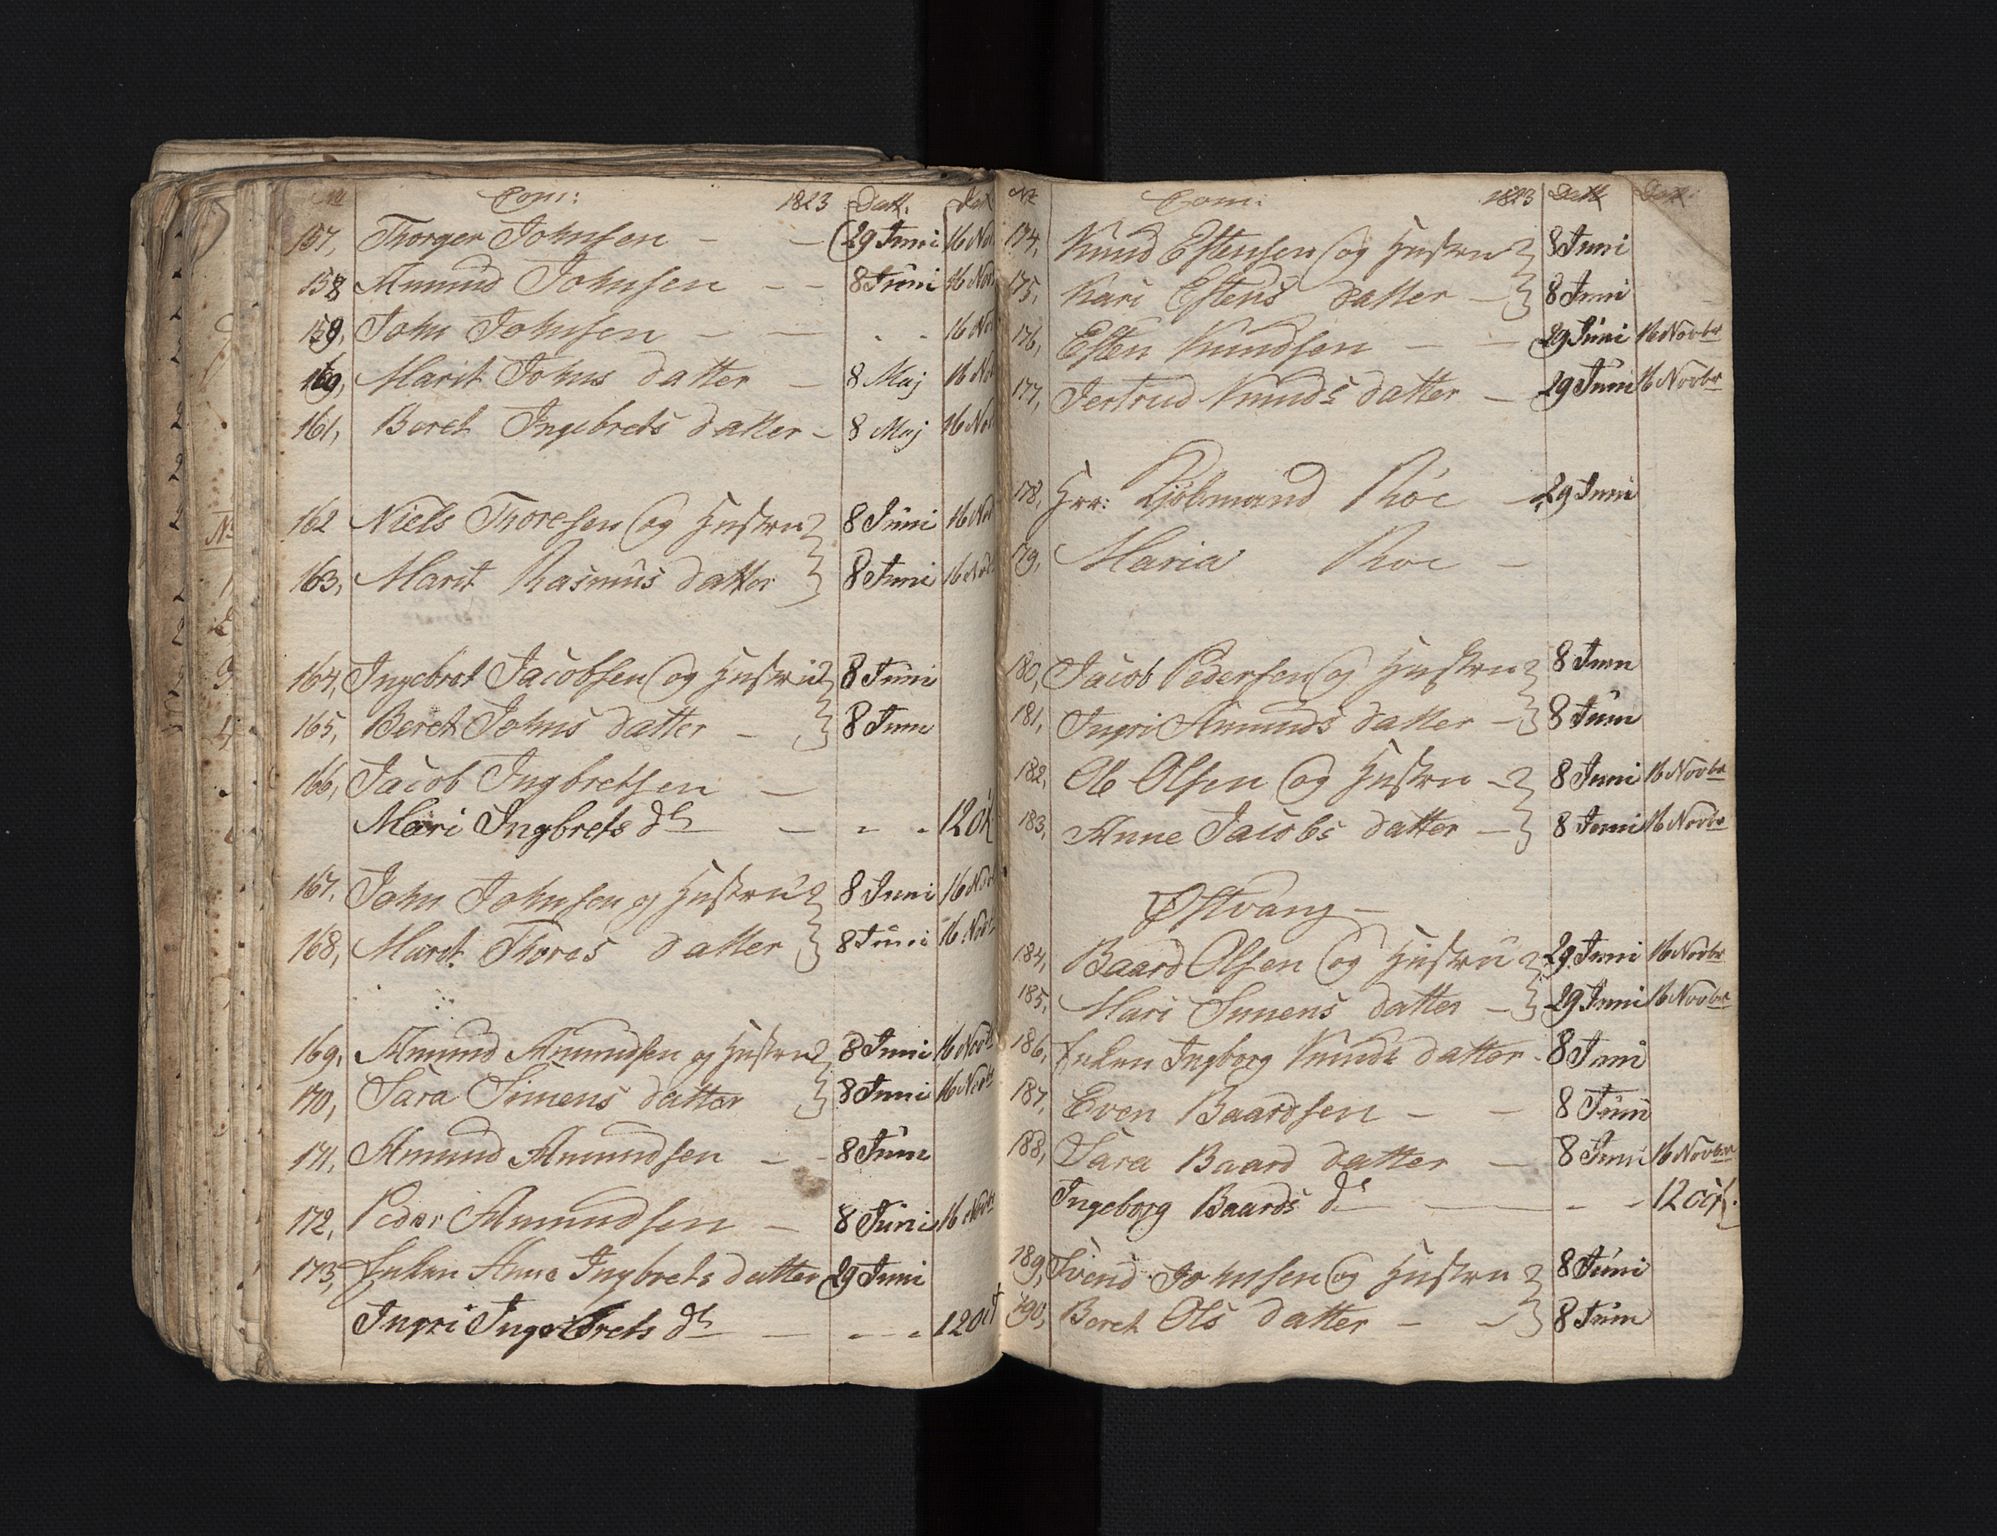 No Com: 1823 Datt: Dat
157, Thorger Johnsen - - 29 Juni 16 Nov
158 Amund Johnsen - - 8 Juni 16 Nov
159, John Johnsen - - - - 16 Nov
160, Marit Johns datter - 8 Maj 16 Nov
161, Beret Ingebrets datter - 8 Maj 16 Nov
162 Niels Thoresen og Hustru 8 Juni 16 Nov
163, Marit Rasmus datter 8 Juni 16 Nov
164, Ingebret Jacobsen og Hustru 8 Juni
165, Beret Johns datter - 8 Juni
166, Jacob Ingbretsen -
Mari Ingbrets dr - - - 12 oct
167, John Johnsen og Hustru 8 Juni 16 Nov
168, Marit Thores datter 8 Juni 16 Nov
169, Amund Amundsen og Hustru 8 Juni 16 Novb
170, Sara Simens datter 8 Juni 16 Novb
171, Amund Amundsen - - 8 Juni
172, Peder Amundsen - 8 Juni 16 Novb
173, Enken Anne Ingbrets datter 29 Juni
Ingri Ingebrets dr - - - 12 oct
No Com: 1823 Datt Datt:
174, Knud Estensen og Hustru 8 Juni
175, Kari Estens datter - 8 Juni
176, Esten Knudsen - - 29 Juni 16 Novbr
177, Jertrud Knuds datter - 29 Juni 16 Novbr
178, Hrr: Kjöbmand Röe - 29 Juni
179, Maria Roe -
180, Jacob Pedersen og Hustru 8 Juni
181, Ingri Amunds datter - 8 Juni
182, Ole Olsen og Hustru - 8 Juni 16 Novbr
183, Anne Jacobs datter - 8 Juni 16 Novbr
Østvang -
184, Baard Olsen og Hustru 29 Juni 16 Novbr
185, Mari Simens datter - 29 Juni 16 Novbr
186, Enken Ingborg Knuds datter - 8 Juni
187, Even Baardsen - - 8 Juni
188, Sara Baard datter - 8 Juni 16 Novbr
Ingeborg Baards dr - - - 12 oct.
189, Svend Johnsen og Hustru 8 Juni
190, Beret Ols datter - - 8 Juni